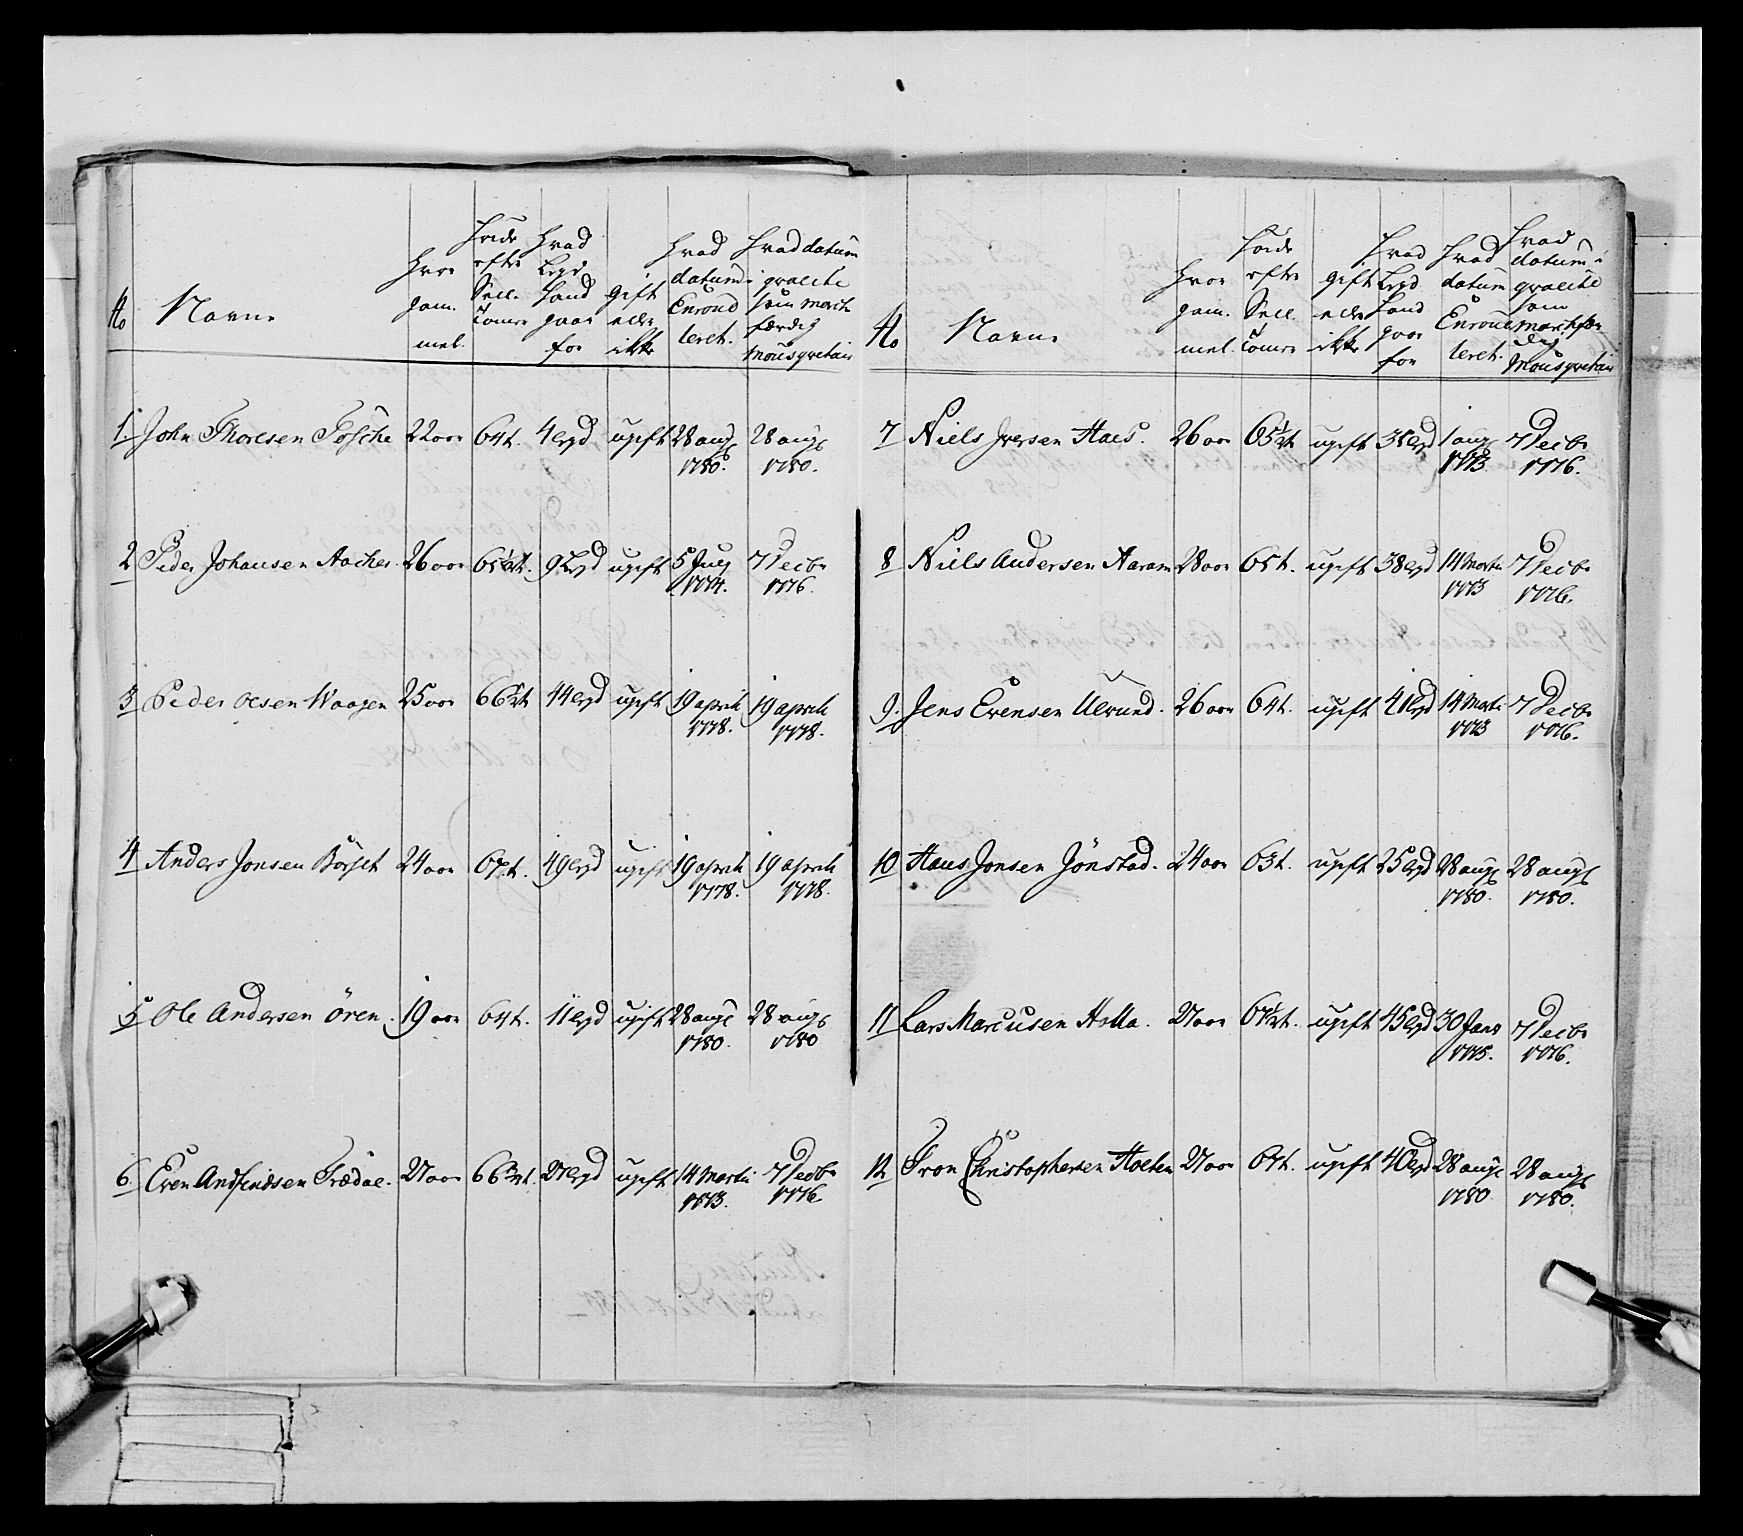 No Navn
Hvor gam- mel.
Høide efter Sell. Tomr
Hvad Legd Hand gaar for
gift eller ikke
Hvad datum Enroul leret.
Hvad datum i qvalite som march færdig Mousqvetair
1. John Thoresen 22 aar 64 t. 4 legd ugift 28 aug 1780. 28 aug 1780.
2 Peder Johansen Aacker. 26 aar 9 Legd ugift 5 1774. 7 Decbr 1776.
3 Peder Olsen Waagen 25 aar 44 legd ugift 19 april 1778. 19 april 1778.
4 Anders Jonsen Börset 24 aar 49 legd ugift 19 april 1778. 19 april 1778.
5 Ole Andersen Ören. 19 aar 64 t. 11 legd ugift 28 aug 1780. 28 aug 1780
6. Even Andfindsen Trædal. 27 aar 27 legd ugift 14 Martii 1773. 7 Decbr 1776
No Navn
Hvor gam- mel.
Høide efter Sell. Tomr
gift eller ikke
Hvad Legd Hand gaar for
Hvad datum Enroul leret.
Hvad datum i qvalite som march fær dig Mousqvetair
7 Niels Iversen Haes. 26 aar 65½ t. ugift 35 legd 1 aug 1773. 7 Decbr 1776.
8 Niels Andersen Aaram 28 aar 65 t. ugift 38 legd 14 Martii 1773 7 Decbr 1776.
9. Jens Evensen Ulvund. 26 aar 64 t. ugift 41 legd 14 Marti 1773 7 Decbr 1776.
10 Hans Jonsen Jönstad. 24 aar 63 t. ugift 25 legd 28 aug 1780. 28 aug 1780.
11 Lars Marcusen Holla. 27 aar ugift 45 legd 30 Janr 1775. 7 Decbr 1776.
12 Tron Christophersen Holten 27 aar ugift 40 legd 28 aug 1780 28 aug 1780.